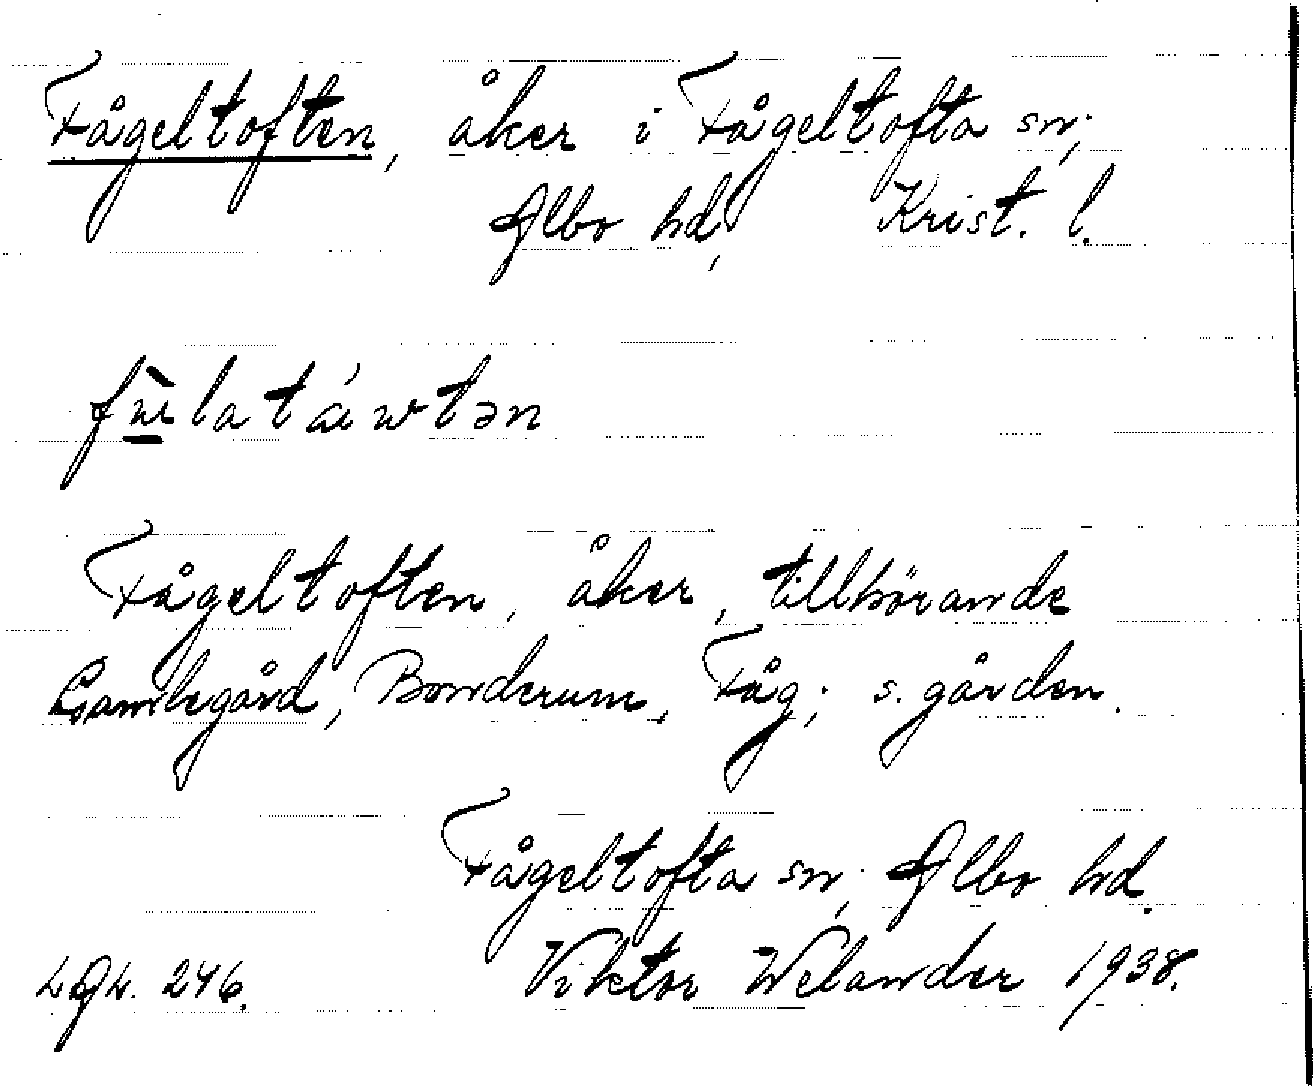 Fågeltoften, åker i Fågeltofta sn;
Albo hd, Krist. l.
Fågeltoften, åker, tillhörande
Gamlegård, Bonderum, Fåg; s. gården.
Fågeltofta sn, Albo hd.
246. Viktor Welander 1938.